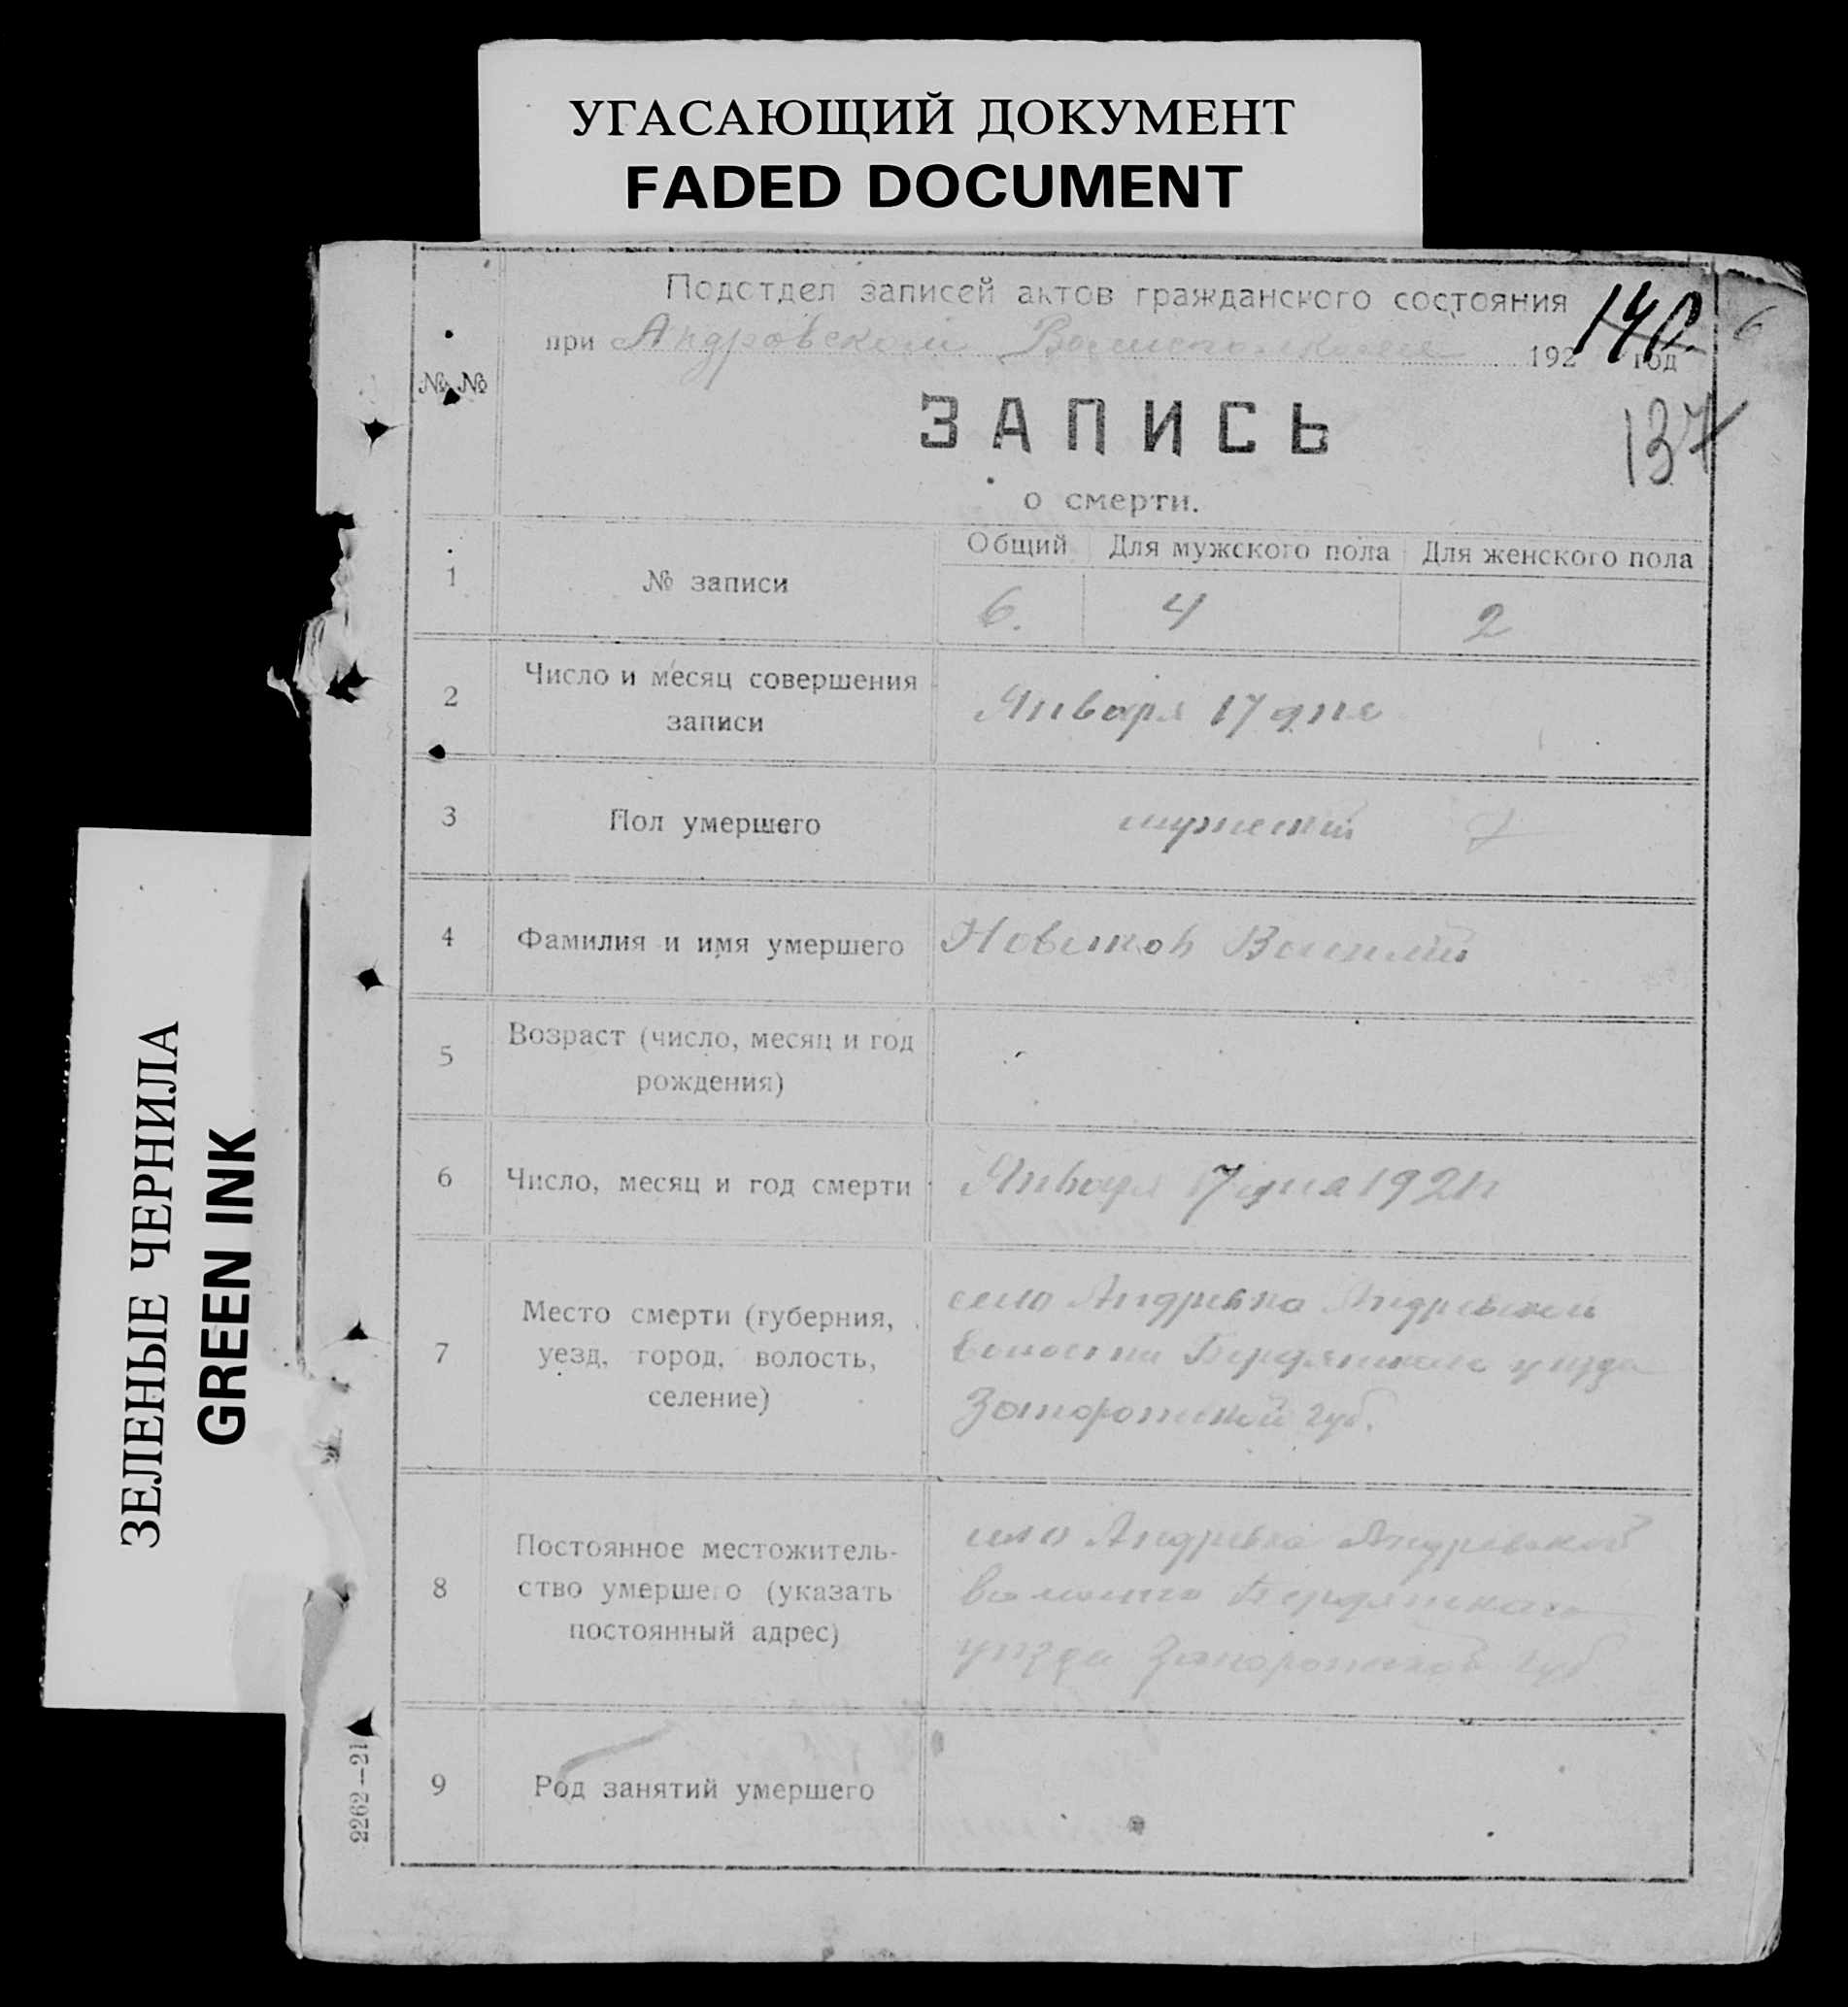 УГАСАЮЩИЙ ДОКУМЕНТ
FADED DOCUMENT
ЗЕЛЕНЫЕ ЧЕРНИЛА
GREEN INK
Подотдел записей актов гражданского состояния
при Андровском Волисполкоме 192 год
140. 6
137
№ №
ЗАПИСЬ
о смерти.
Общий Для мужского пола Для женского пола
1 № записи 6. 4 2
2 Число и месяц совершения
записи
Января 17 дня
3 Пол умершего мужской
4 Фамилия и имя умершего Новиков Василий
5 Возраст (число, месяц и год
рождения)
6 Число, месяц и год смерти Января 17 дня 192
7 Место смерти (губерния,
уезд, город, волость,
селение)
село Андревка Андревской
волости Бердянскаго уезда
Запорожской губ.
8 Постоянное местожитель-
ство умершего (указать
постоянный адрес)
село Андревка Андревской
волости Бердянскаго
уезда Запорожской губ
9 Род занятий умершего
2262—21